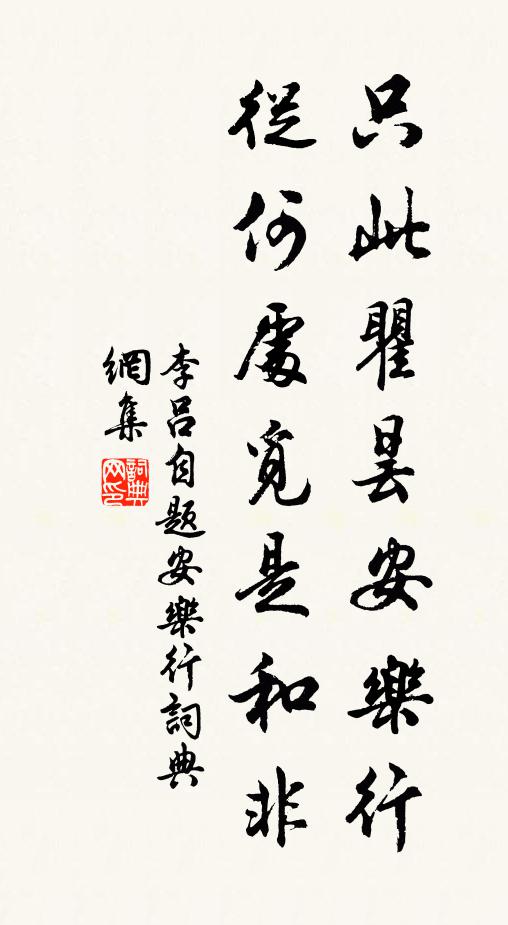 只此瞿曇安樂行
從何處覓是和非
李呂自題安樂行詞典
網集
詞典
网印